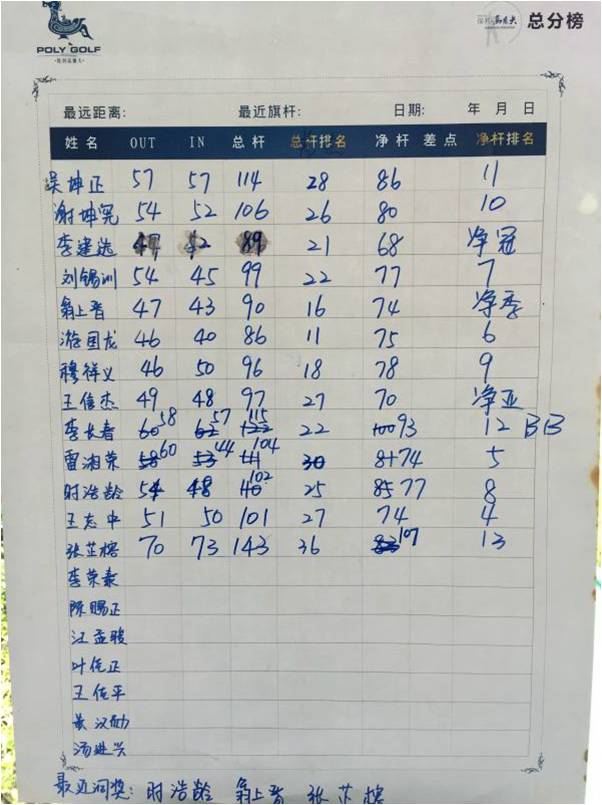 POLY GOLF
总分榜
最远距离: 最近旗杆: 日期: 年 月 日
姓名 OUT IN 总杆 总杆排名 净杆 差点 净杆排名
吴坤正 57 57 114 28 86 11
谢坤宪 54 52 106 26 80 10
李建选 47 42 89 21 68 净冠
刘锡训 54 45 99 22 77 7
翁上晋 47 43 90 16 74 净季
游国龙 46 40 86 11 75 6
穆祥义 46 50 96 18 78 9
王俊杰 49 48 97 27 70 净亚
李长春 60 58 62 57 122 115 22 100 93 12 BB
雷湘荣 58 60 53 44 111 104 30 81 74 5
时浩龄 54 48 102 25 85 77 8
王志中 51 50 101 27 74 4
张芷榕 70 73 143 36 83 107 13
李荣泰
陈赐正
江孟骏
叶佐正
王佐平
黄汉勋
汤进兴
最近洞奖: 时浩龄 翁上晋 张芷榕